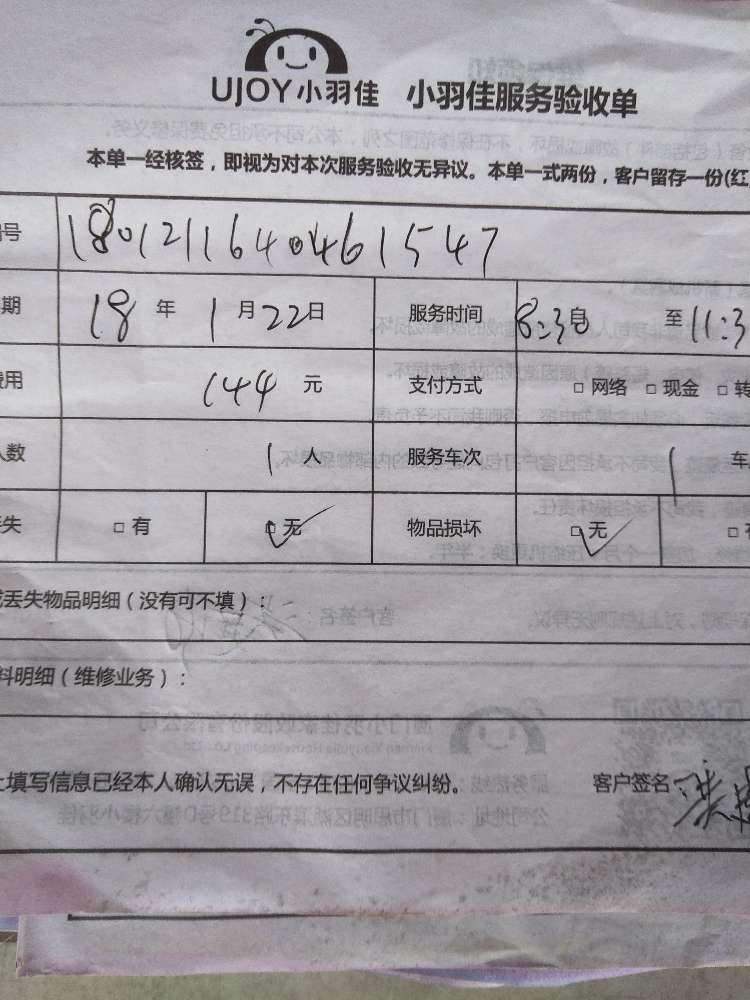 UJOY小羽佳 小羽佳服务验收单
本单一经核签，即视为对本次服务验收无异议。本单一式两份，客户留存一份(红
号 1801211640461547
期 18 年 1 月 22 日 服务时间 8:30 至 11:3
费用 144 元 支付方式 □ 网络 □ 现金 □ 转
人数 1 人 服务车次 1 车
丢失 □ 有 □ 无 物品损坏 □ 无 □
丢失物品明细（没有可不填）:
料明细（维修业务）:
上填写信息已经本人确认无误，不存在任何争议纠纷。 客户签名